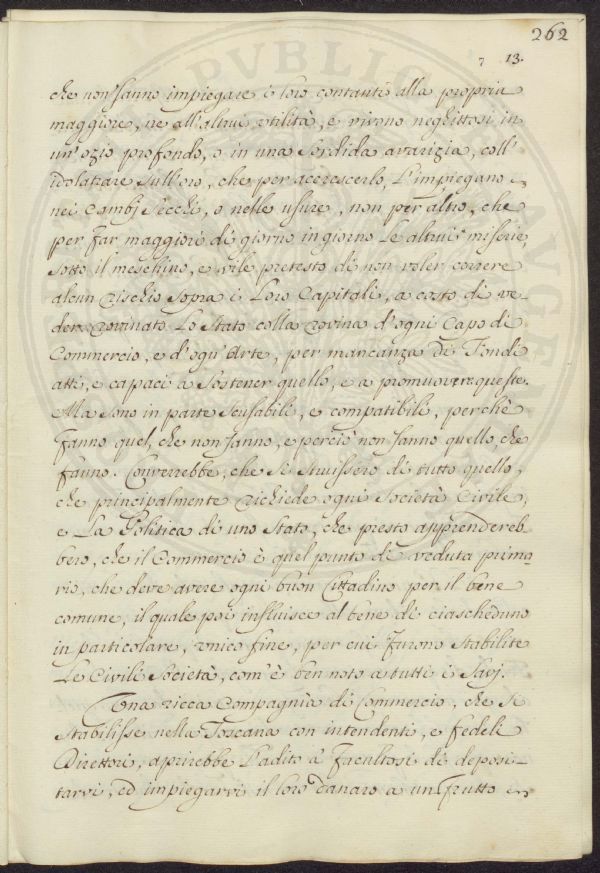 262
7 13.
che non sanno impiegare i loro contanti alla propria
maggiore, ne all'altrui utilità, e vivono neghittosi in
un'ozio profondo, o in una sordida avarizia, coll'
idolatrare sull'oro, che per accrescerlo, l'impiegano
nei Cambj secchi, o nelle usure, non per altro, che
per far maggiori di giorno in giorno le altrui miserie,
sotto il meschino, e vile pretesto di non voler correre
alcun rischio sopra i loro Capitali, a costo di ve-
dere rovinato lo Stato colla rovina d'ogni Capo di
Commercio, e d'ogn'Arte, per mancanza di Fondi
atti, e capaci a sostener quello, e a promuover queste.
Ma sono in parte scusabili, e compatibili, perchè
fanno quel, che non sanno, e perciò non sanno quello, che
fanno. Converrebbe, che si istruissero di tutto quello,
che principalmente richiede ogni Società Civile,
e la Politica di uno Stato, che presto apprendereb-
bero, che il Commercio è quel punto di veduta prima-
rio, che deve avere ogni buon Cittadino per il bene
comune, il quale poi influisce al bene di ciascheduno
in particolare, unico fine, per cui furono stabilite
le Civili Società, com'è ben noto a tutti i Savj.
Una ricca Compagnìa di Commercio, che si
stabilisse nella Toscana con intendenti, e fedeli
Direttori, aprirebbe l'adito a Facultosi di deposi-
tarvi, ed impiegarvi il loro danaro a un frutto
PVBLICO
AVGE